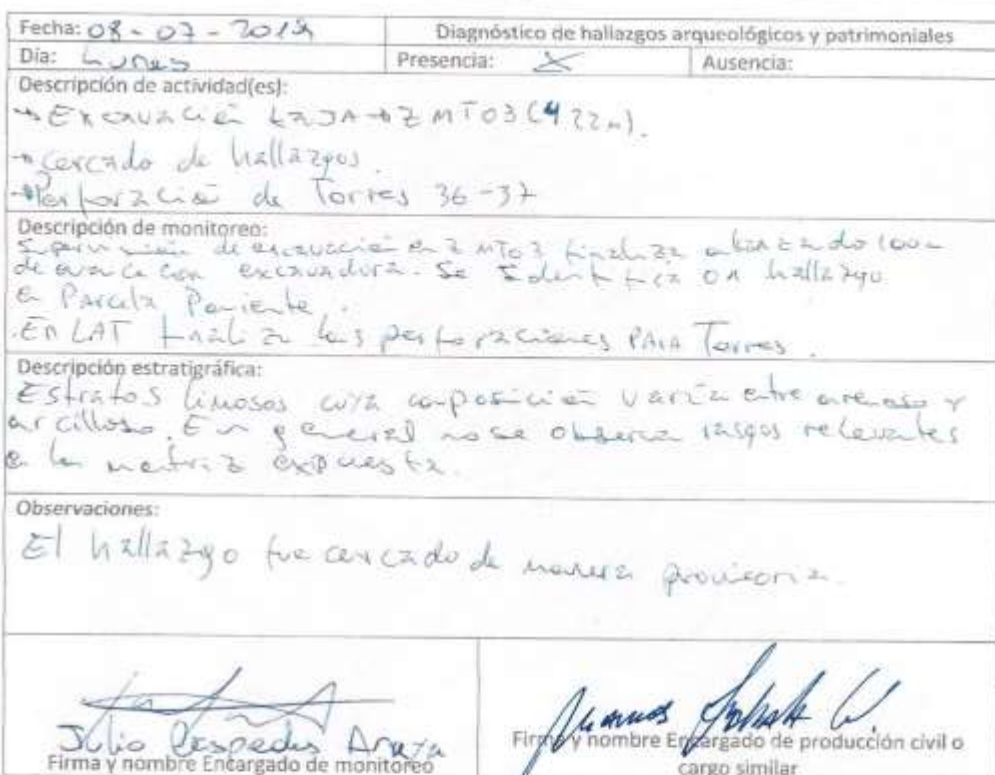 Fecha: 08-07-2019 Diagnóstico de hallazgos arqueológicos y patrimoniales
Día: Lunes Presencia: X Ausencia:
Descripción de actividad(es):
→ Excavación zanja → ZMT03 (422m).
→ cercado de hallazgos.
→ Perforación de Torres 36-37
Descripción de monitoreo:
Supervisión de excavación en ZMT03 finaliza alcanzando 100m
de avance con excavadora. Se identifica un hallazgo
en Parcela Poniente.
. En LAT finalizan las perforaciones para Torres.
Descripción estratigráfica:
Estratos limosos cuya composición varía entre arenoso y
arcilloso. En general no se observa rasgos relevantes
en la matriz expuesta.
Observaciones:
El hallazgo fue cercado de manera provisoria.
Julio Cespedes Araya
Firma y nombre Encargado de monitoreo
Firma y nombre Encargado de producción civil o
cargo similar